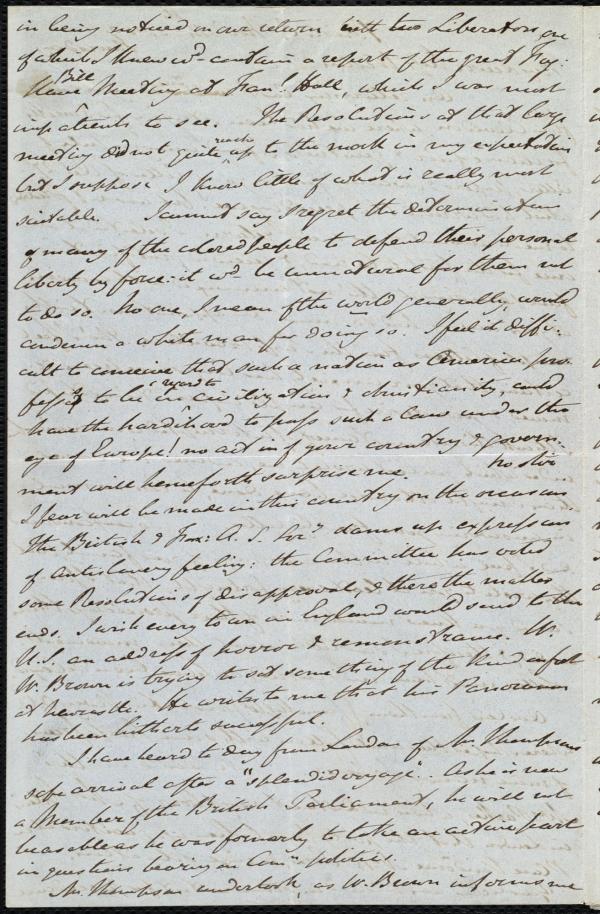 in being noticed on our return with two Liberators, one
of which I knew wd. contain a report of the great Fug:
Slave Bill Meeting at Fan! Hall, which I was most
impatients to see. The Resolutions at that large
meeting did not quite reach up to the mark in my expectation
but I suppose I know little of what is really most
suitable. I cannot say I regret the determination
of many of the colored people to defend their personal
liberty by force: it wd. be unnatural for them not
to do so. No one, I mean of the world generally, would
condemn a white man for doing so. I feel it diffi-
cult to conceive that such a nation as America pro-
fesses to be in regard to civilization & christianity, could
have the hardihood to pass such a law under the
eye of Europe! no act in of your country & govern-
ment will henceforth surprise me. No stir
I fear will be made in this country on the occasion
The British & For: A. S. Socy. dams up expression
of antislavery feeling: the Committee has voted
some Resolutions of disapproval, & there the matter
ends. I wish every town in England would send to the
U.S. an address of horror & remonstrance. W.
W. Brown is trying to set something of the kind afoot
at Newcastle. He writes to me that his Panorama
has been hitherto successful.
I have heard to day from London of Mr. Thompson's
safe arrival after a "splendid voyage". As he is now
a Member of the British Parliament, he will not
be as able as he was formerly to take an active part
in questions bearing on politics.
Mr. Thompson undertook, as W. Brown informs me